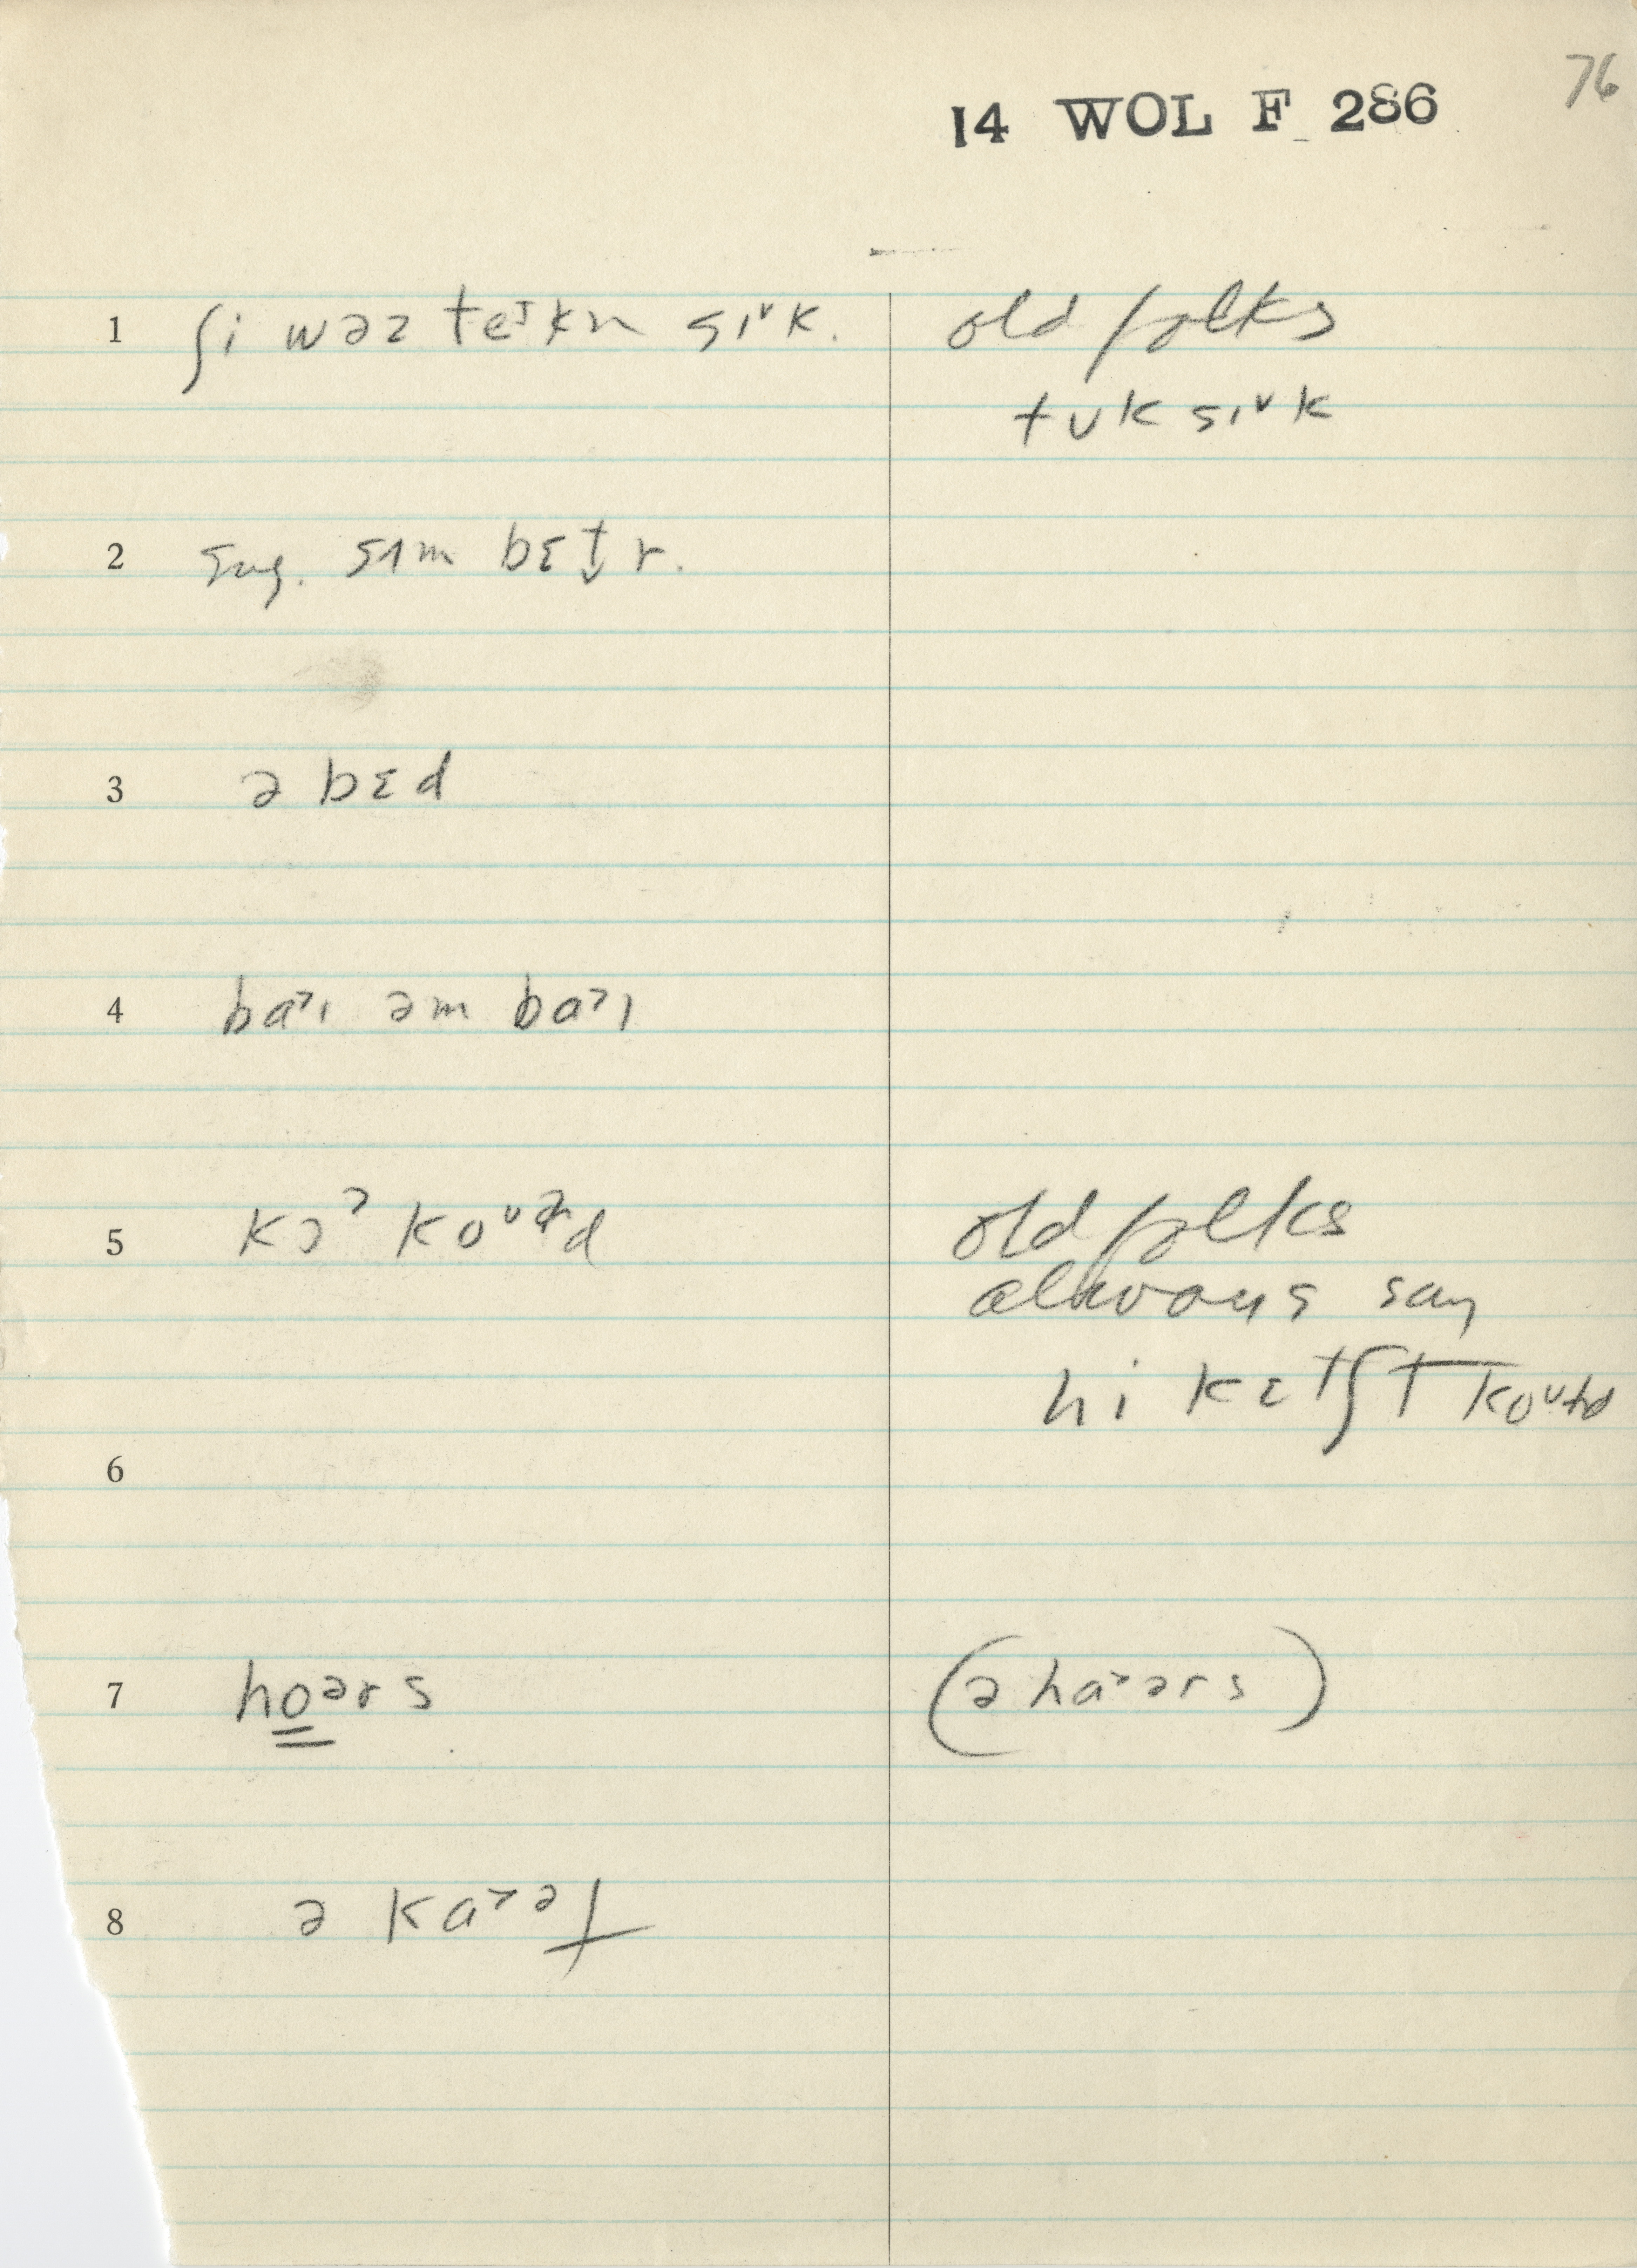 76
14 WOL F 286
1 ʃi wəz teɪkn sɪ˅k. old folks
tʊk sɪ˅k
2 sug. sɪm bɛt̬r.
3 ə bɛd
4 ba˃ɪ əm ba˃ɪ
5 kɔ˒ koʊld old folks
always say
hi kɛtʃt koʊld
6
7 hoərs (ə ha˃ərs)
8 ə ka˃əf